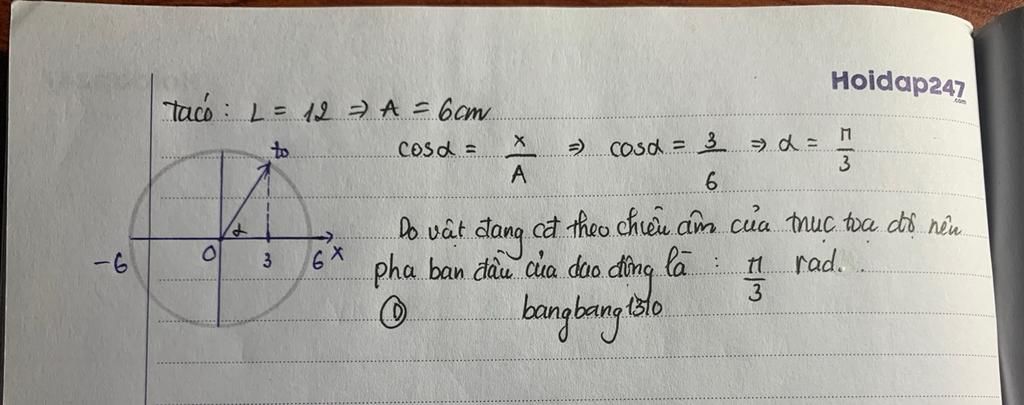 Hoidap247
.com
Ta có : L = 12 => A = 6cm
cosα = x/A => cosα = 3/6 => α = π/3
to
α
-6 O 3 6 x
Do vật đang cđ theo chiều âm của trục tọa độ nên
pha ban đầu của dao động là : π/3 rad.
D bangbang1310